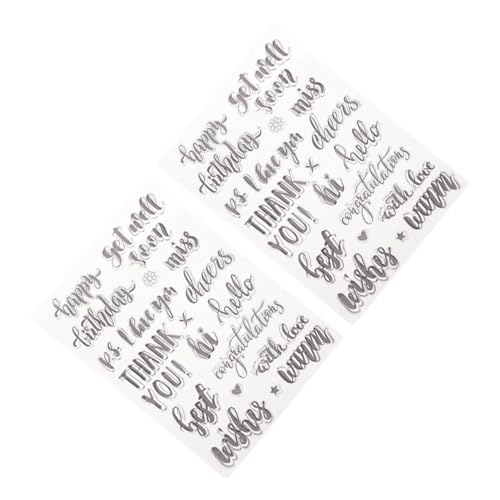 get well
soon
happy
birthday
miss
cheers
P.S. I love you
hello
THANK
YOU!
hi
congratulations
with love
warm
best
wishes
get well
soon
happy
birthday
miss
cheers
P.S. I love you
hello
THANK
YOU!
hi
congratulations
with love
warm
best
wishes